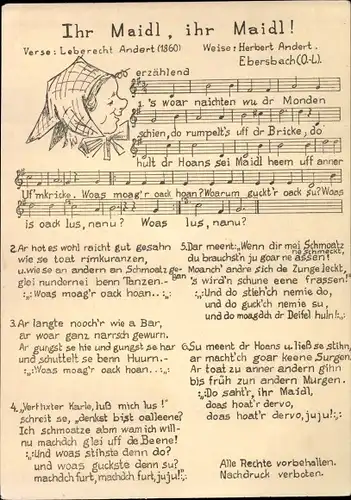 Ihr Maidl, ihr Maidl!
Verse: Leberecht Andert (1860) Weise: Herbert Andert.
Ebersbach (O.-L.)
erzählend
1. 's woar naichten wu dr Monden
schien, do rumpelt's uff dr Bricke, do
hult dr Hoans sei Maidl heem uff anner
Uf'mkricke. Woas moag'r oack hoan? Woarum guckt'r oack su? Woas
is oack lus, nanu? Woas lus, nanu?
2. Ar hot es wohl raicht gut gesahn
wie se toat rimkuranzen,
u. wie se an andern an Schmoatz ge-
gan
glei nundernei benn Tanzen.-
:,: Woas moag'r oack hoan..:,:
3. Ar langte nooch'r wie a Bar,
ar woar ganz narrsch gewurn.
Ar gungst se hie und gungst se har
und schuttelt se benn Huurn.-
:,: Woas moag'r oack hoan..:,:
4. „Verflixter Karle, luß mich lus!"
schreit se, „denkst bist oalleene?
Ich schmoatze abm wam ich will-
nu machdch glei uff de Beene!
:,: Und woas stihste denn do?
und woas guckste denn su?
machdch furt, machdch furt, juju!":,:
5. Dar meent: „Wenn dir mei Schmoatz
nie schmeckt,
du brauchst'n ju goar ne assen!
Moanch' andre sich de Zunge leckt,
's wird'n schune eene frassen!"
:,: Und do stieh'ch nemie do,
und do guck'ch nemie su,
und do moagdch dr Deifel huln!:,:
6. Su meent dr Hoans u. ließ se stihn,
ar macht'ch goar keene Surgen.
Ar toat zu anner andern gihn
bis früh zun andern Murgen.
:,: Do saht'r, ihr Maidl,
doas hoat'r dervo,
doas hoat'r dervo, juju!:,:
Alle Rechte vorbehalten.
Nachdruck verboten.